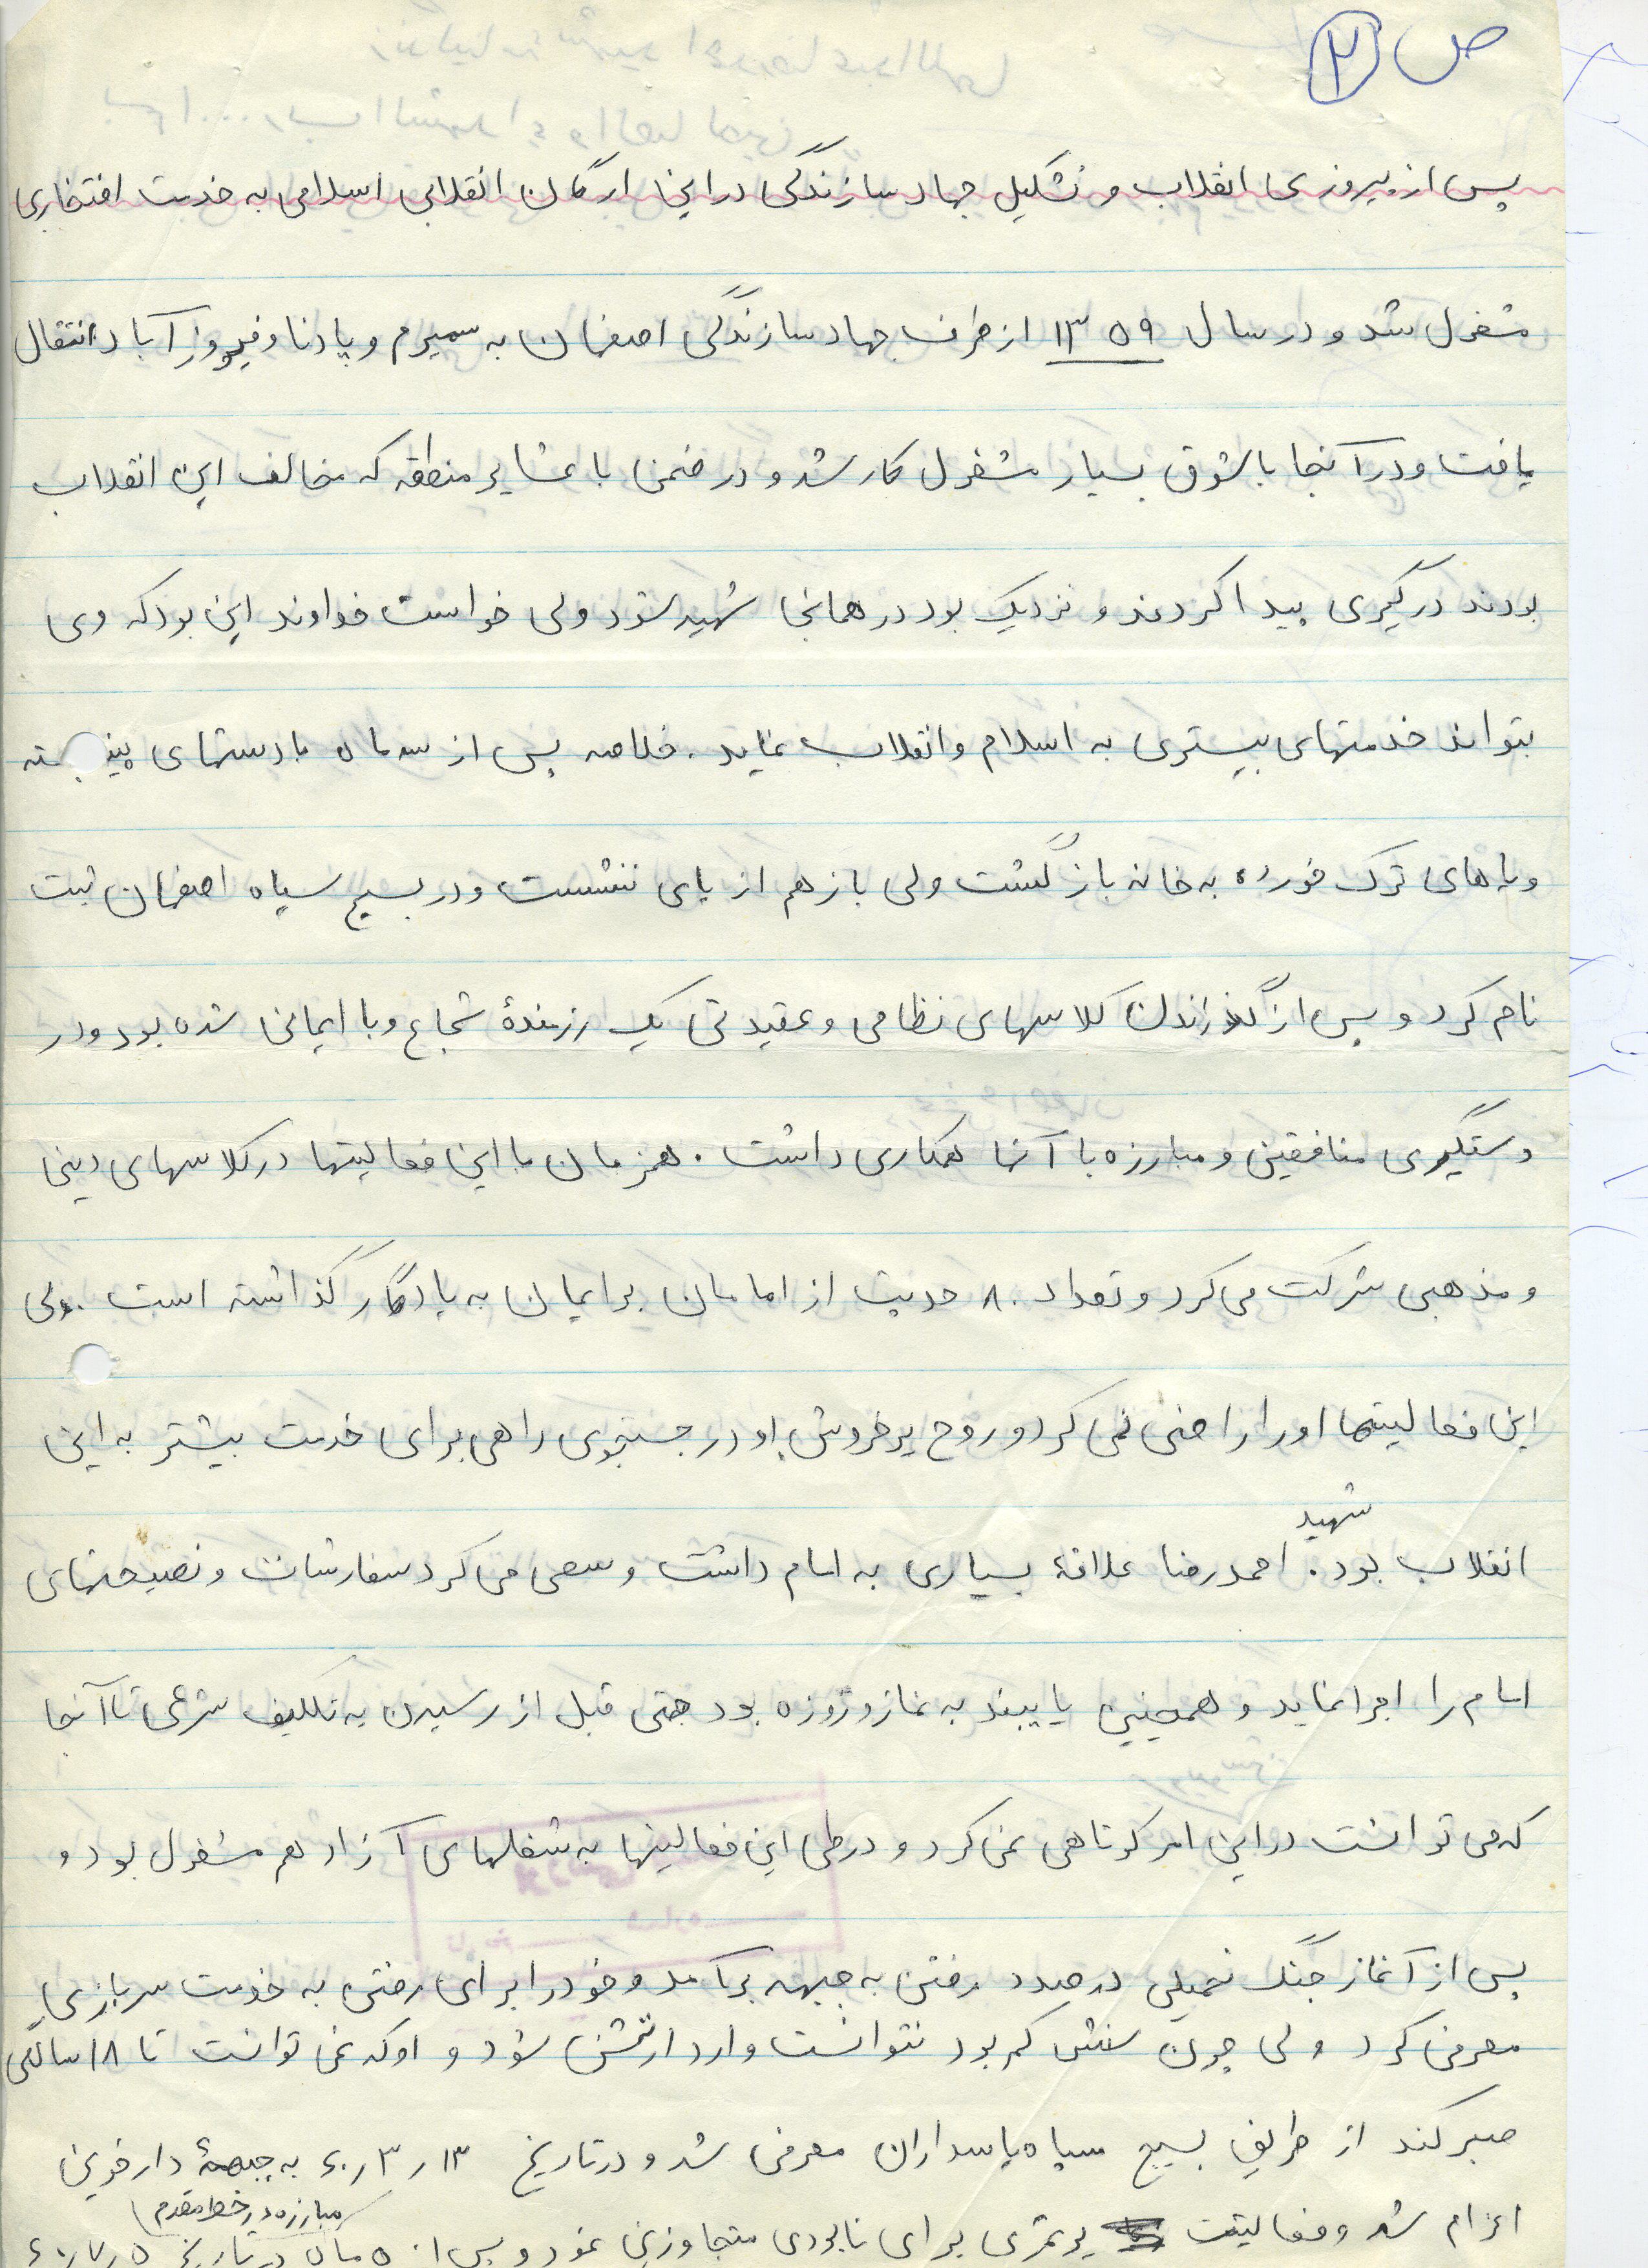 ص ۲
پس از پیروزی انقلاب و تشکیل جهاد سازندگی در این ارگان انقلابی اسلامی به خدمت افتخاری
مشغول شد و در سال ۱۳۵۹ از طرف جهاد سازندگی اصفهان به سمیرم و پادنا و فیروزآباد انتقال
یافت و در آنجا با شوق بسیار مشغول کار شد و در ضمن با عشایر منطقه که مخالف این انقلاب
بودند درگیری پیدا کردند و نزدیک بود در همانجا شهید شود ولی خواست خداوند این بود که وی
بتواند خدمتهای بیشتری به اسلام و انقلاب نماید. خلاصه پس از سه ماه با دستهای پینه بسته
و پاهای ترک خورده به خانه بازگشت ولی باز هم از پای ننشست و در بسیج سپاه اصفهان ثبت
نام کرد و پس از گذراندن کلاسهای نظامی و عقیدتی یک رزمندهٔ شجاع و با ایمانی شده بود و در
دستگیری منافقین و مبارزه با آنها همکاری داشت. همزمان با این فعالیتها در کلاسهای دینی
و مذهبی شرکت می کرد و تعداد ۸۰ حدیث از امامان برایمان به یادگار گذاشته است. ولی
این فعالیتها او را راضی نمی کرد و روح پرخروش او در جستجوی راهی برای خدمت بیشتر به این
انقلاب بود. شهید احمدرضا علاقهٔ بسیاری به امام داشت و سعی می کرد سفارشات و نصیحتهای
امام را اجرا نماید و همچنین پایبند به نماز و روزه بود حتی قبل از رسیدن به تکلیف شرعی تا آنجا
که می توانست در این امر کوتاهی نمی کرد و در طی این فعالیتها به شغلهای آزاد هم مشغول بود و
پس از آغاز جنگ تحمیلی درصدد رفتن به جبهه برآمد و خود را برای رفتن به خدمت سربازی
معرفی کرد ولی چون سنش کم بود نتوانست وارد ارتش شود و او که نمی توانست تا ۱۸ سالگی
صبر کند از طریق بسیج سپاه پاسداران معرفی شد و در تاریخ ۱۳ ر ۳ ر ۶۰ به جبههٔ دارخوین
اعزام شد و فعالیت پرثمری برای نابودی متجاوزین نمود و پس از ۵ ماه مبارزه در خط مقدم در تاریخ ۵ ر ۷ ر ۶۰